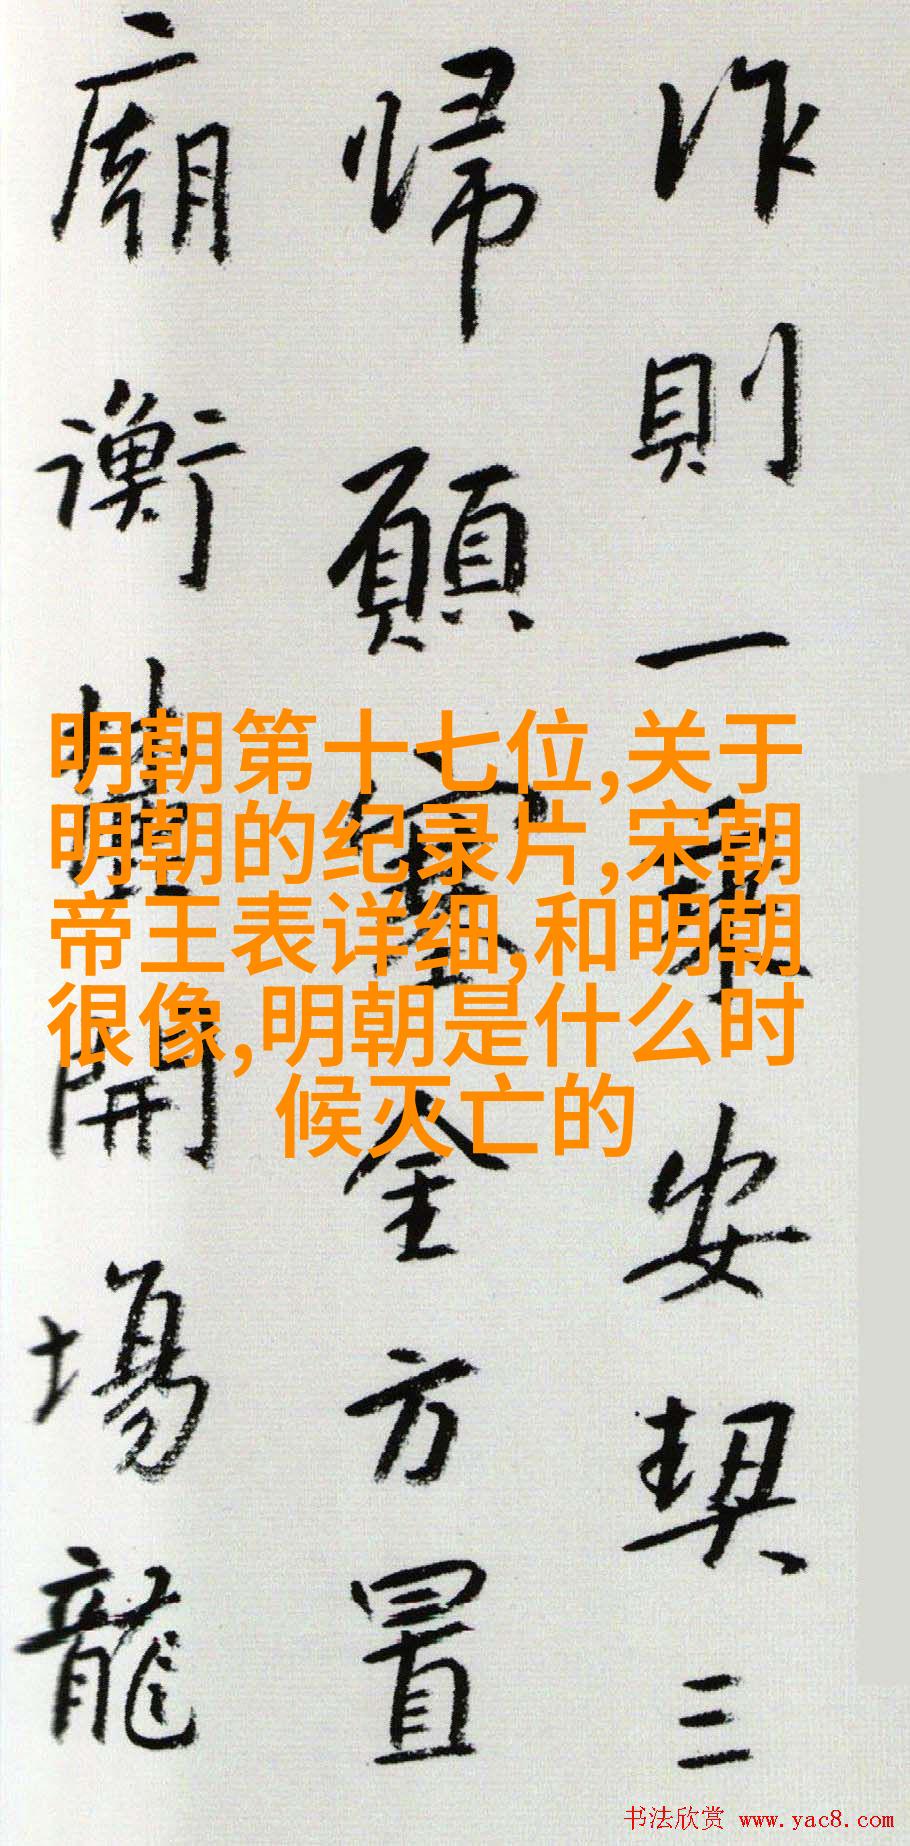 作則一安契三
歸願全方置
廟衡開場龍
明朝第十七位,关于
明朝的纪录片,宋朝
帝王表详细,和明朝
很像,明朝是什么时
候灭亡的
书法欣赏 www.yac8.com